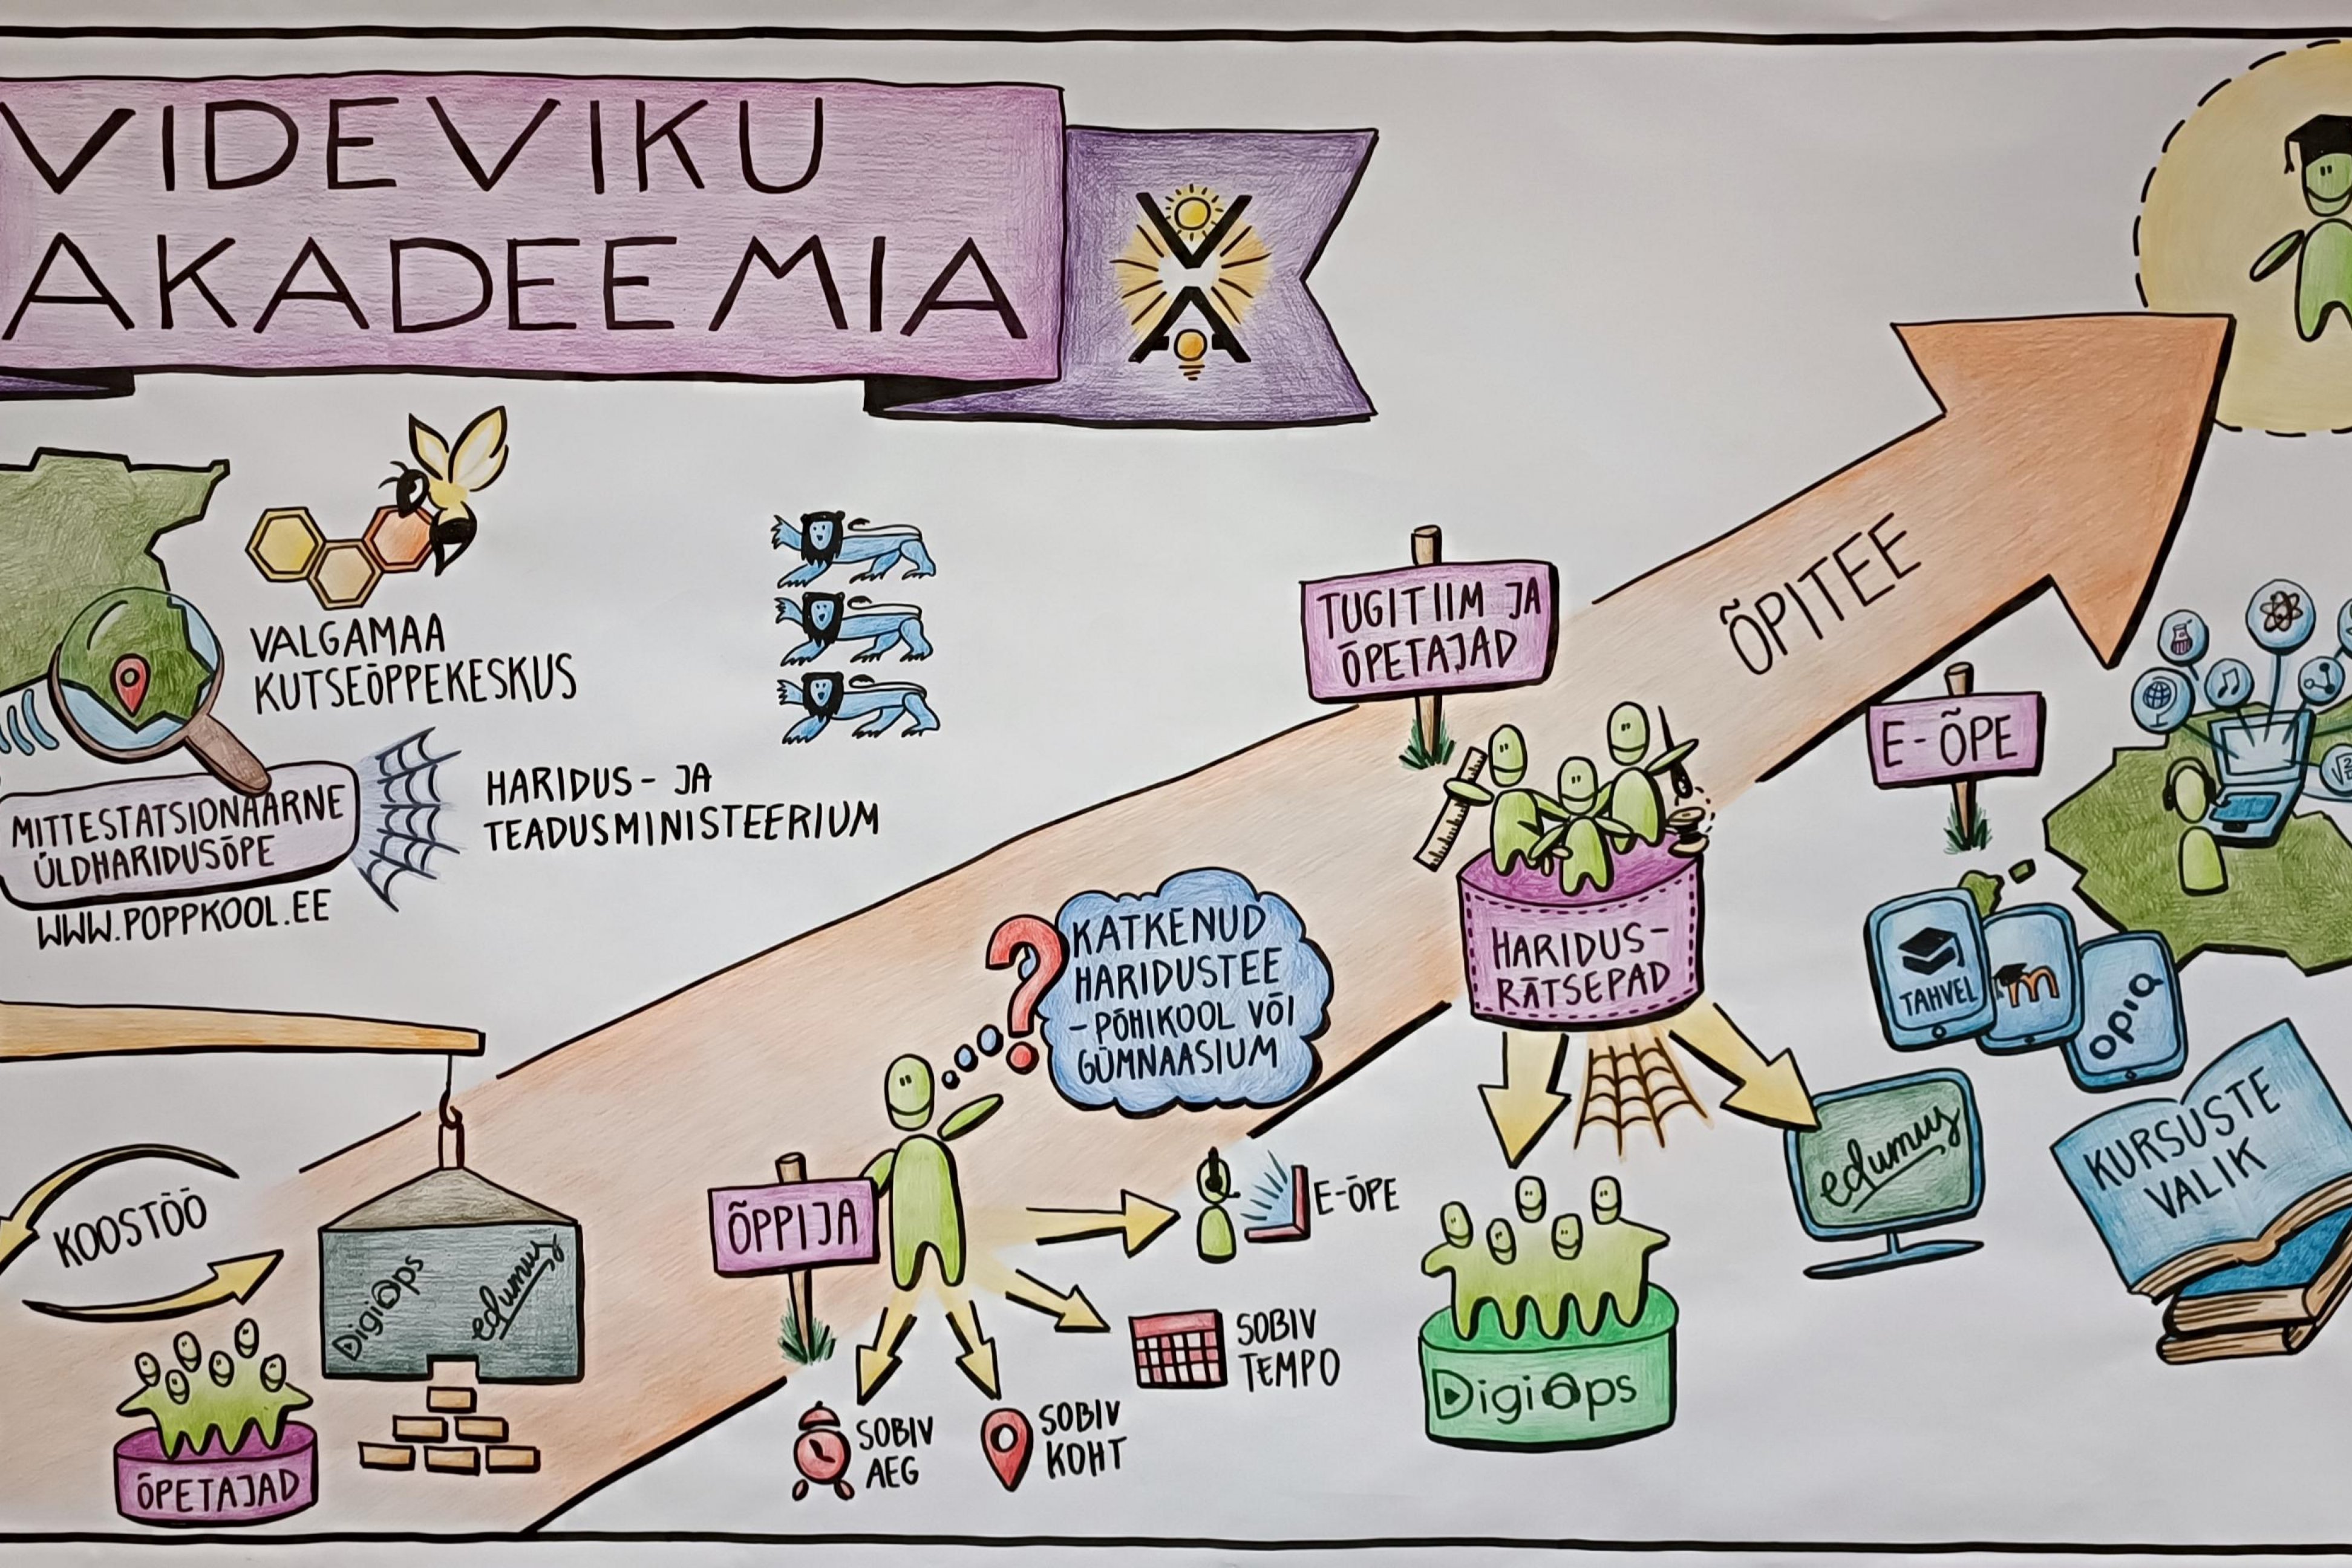 VIDEVIKU
AKADEEMIA
VALGAMAA
KUTSEÕPPEKESKUS
MITTESTATSIONAARNE
ÜLDHARIDUSÕPE
WWW.POPPKOOL.EE
HARIDUS- JA
TEADUSMINISTEERIUM
KOOSTÖÖ
ÕPETAJAD
DigiÕps
edumus
ÕPPIJA
KATKENUD
HARIDUSTEE
-PÕHIKOOL VÕI
GÜMNAASIUM
?
E-ÕPE
SOBIV
TEMPO
SOBIV
KOHT
SOBIV
AEG
TUGITIIM JA
ÕPETAJAD
HARIDUS-
RÄTSEPAD
DigiÕps
edumus
ÕPITEE
E-ÕPE
TAHVEL
m
opiq
KURSUSTE
VALIK